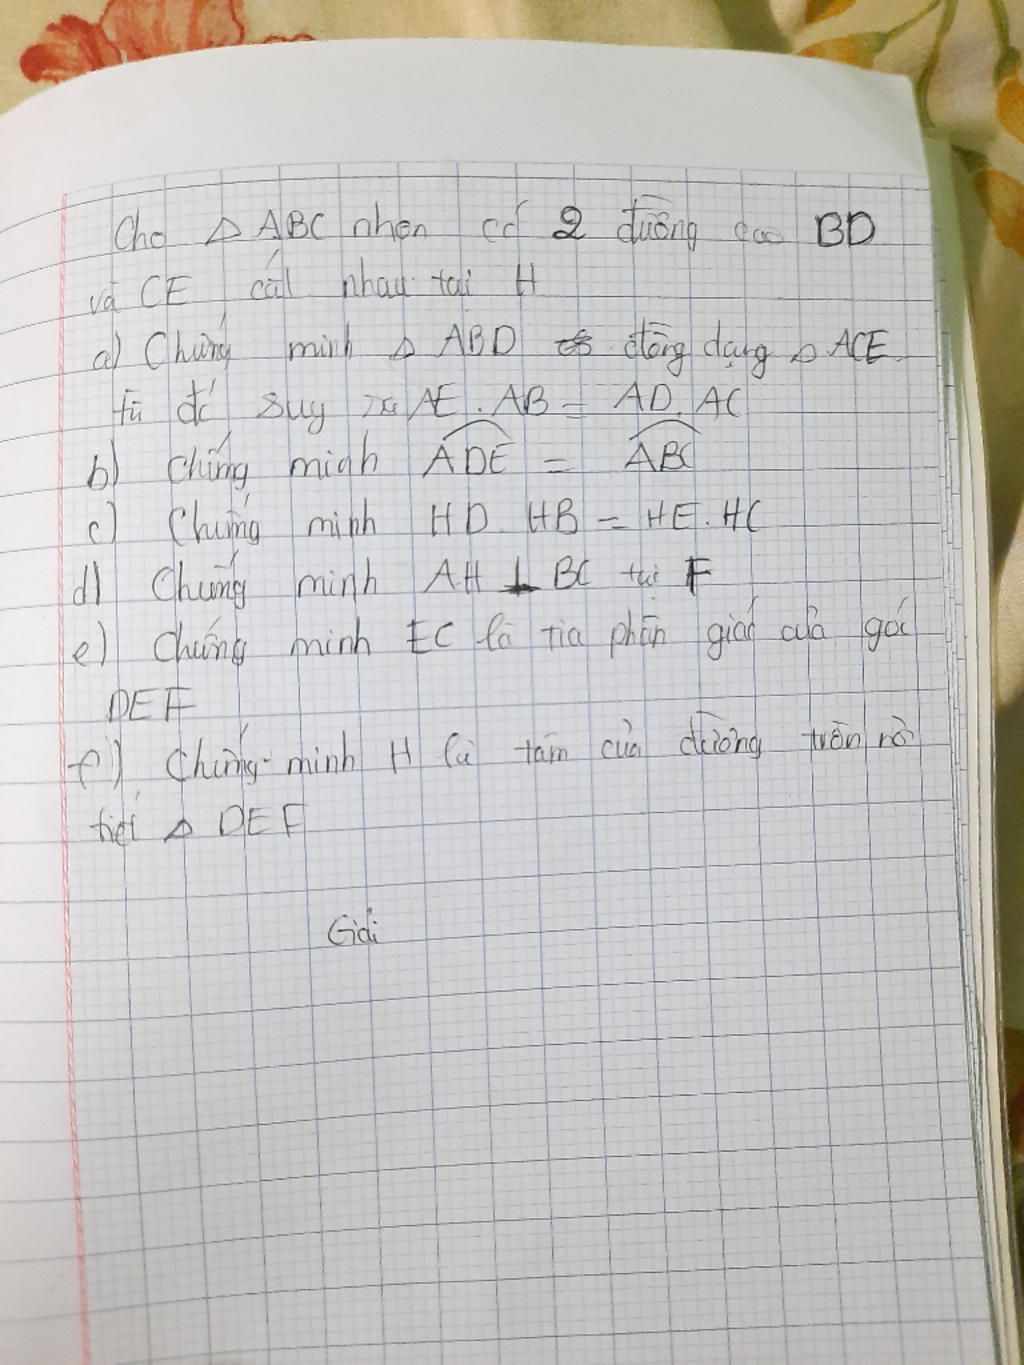 Cho △ ABC nhọn có 2 đường cao BD
và CE cắt nhau tại H
a) Chứng minh △ ABD đồng dạng △ ACE
từ đó suy ra AE . AB = AD. AC
b) Chứng minh ADE = ABC
c) Chứng minh HD. HB = HE. HC
d) Chứng minh AH ⊥ BC tại F
e) Chứng minh EC là tia phân giác của góc
DEF
f) Chứng minh H là tâm của đường tròn nội
tiếp △ DEF
Giải